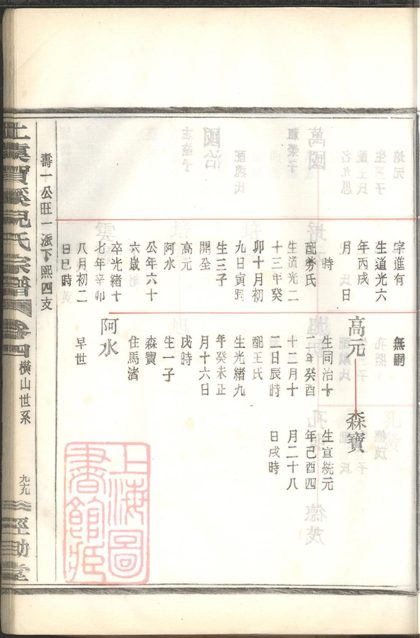 字進有
生道光六
年丙戌
月 日
時
配勞氏
生道光二
十三年癸
卯十月初
九日寅時
生三子
開全
高元
阿水
公年六十
六歲
卒光緒十
七年辛卯
八月初二
日巳時
無嗣
高元
生同治十
二年癸酉
十二月十
二日辰時
配王氏
生光緒九
年癸未正
月十六日
戌時
生一子
森寶
阿水
早世
森寶
生宣統元
年己酉四
月二十八
日戌時
壽一公旺一派下熙四支
上虞賀溪倪氏宗譜
橫山世系
九九
上海圖
書館藏